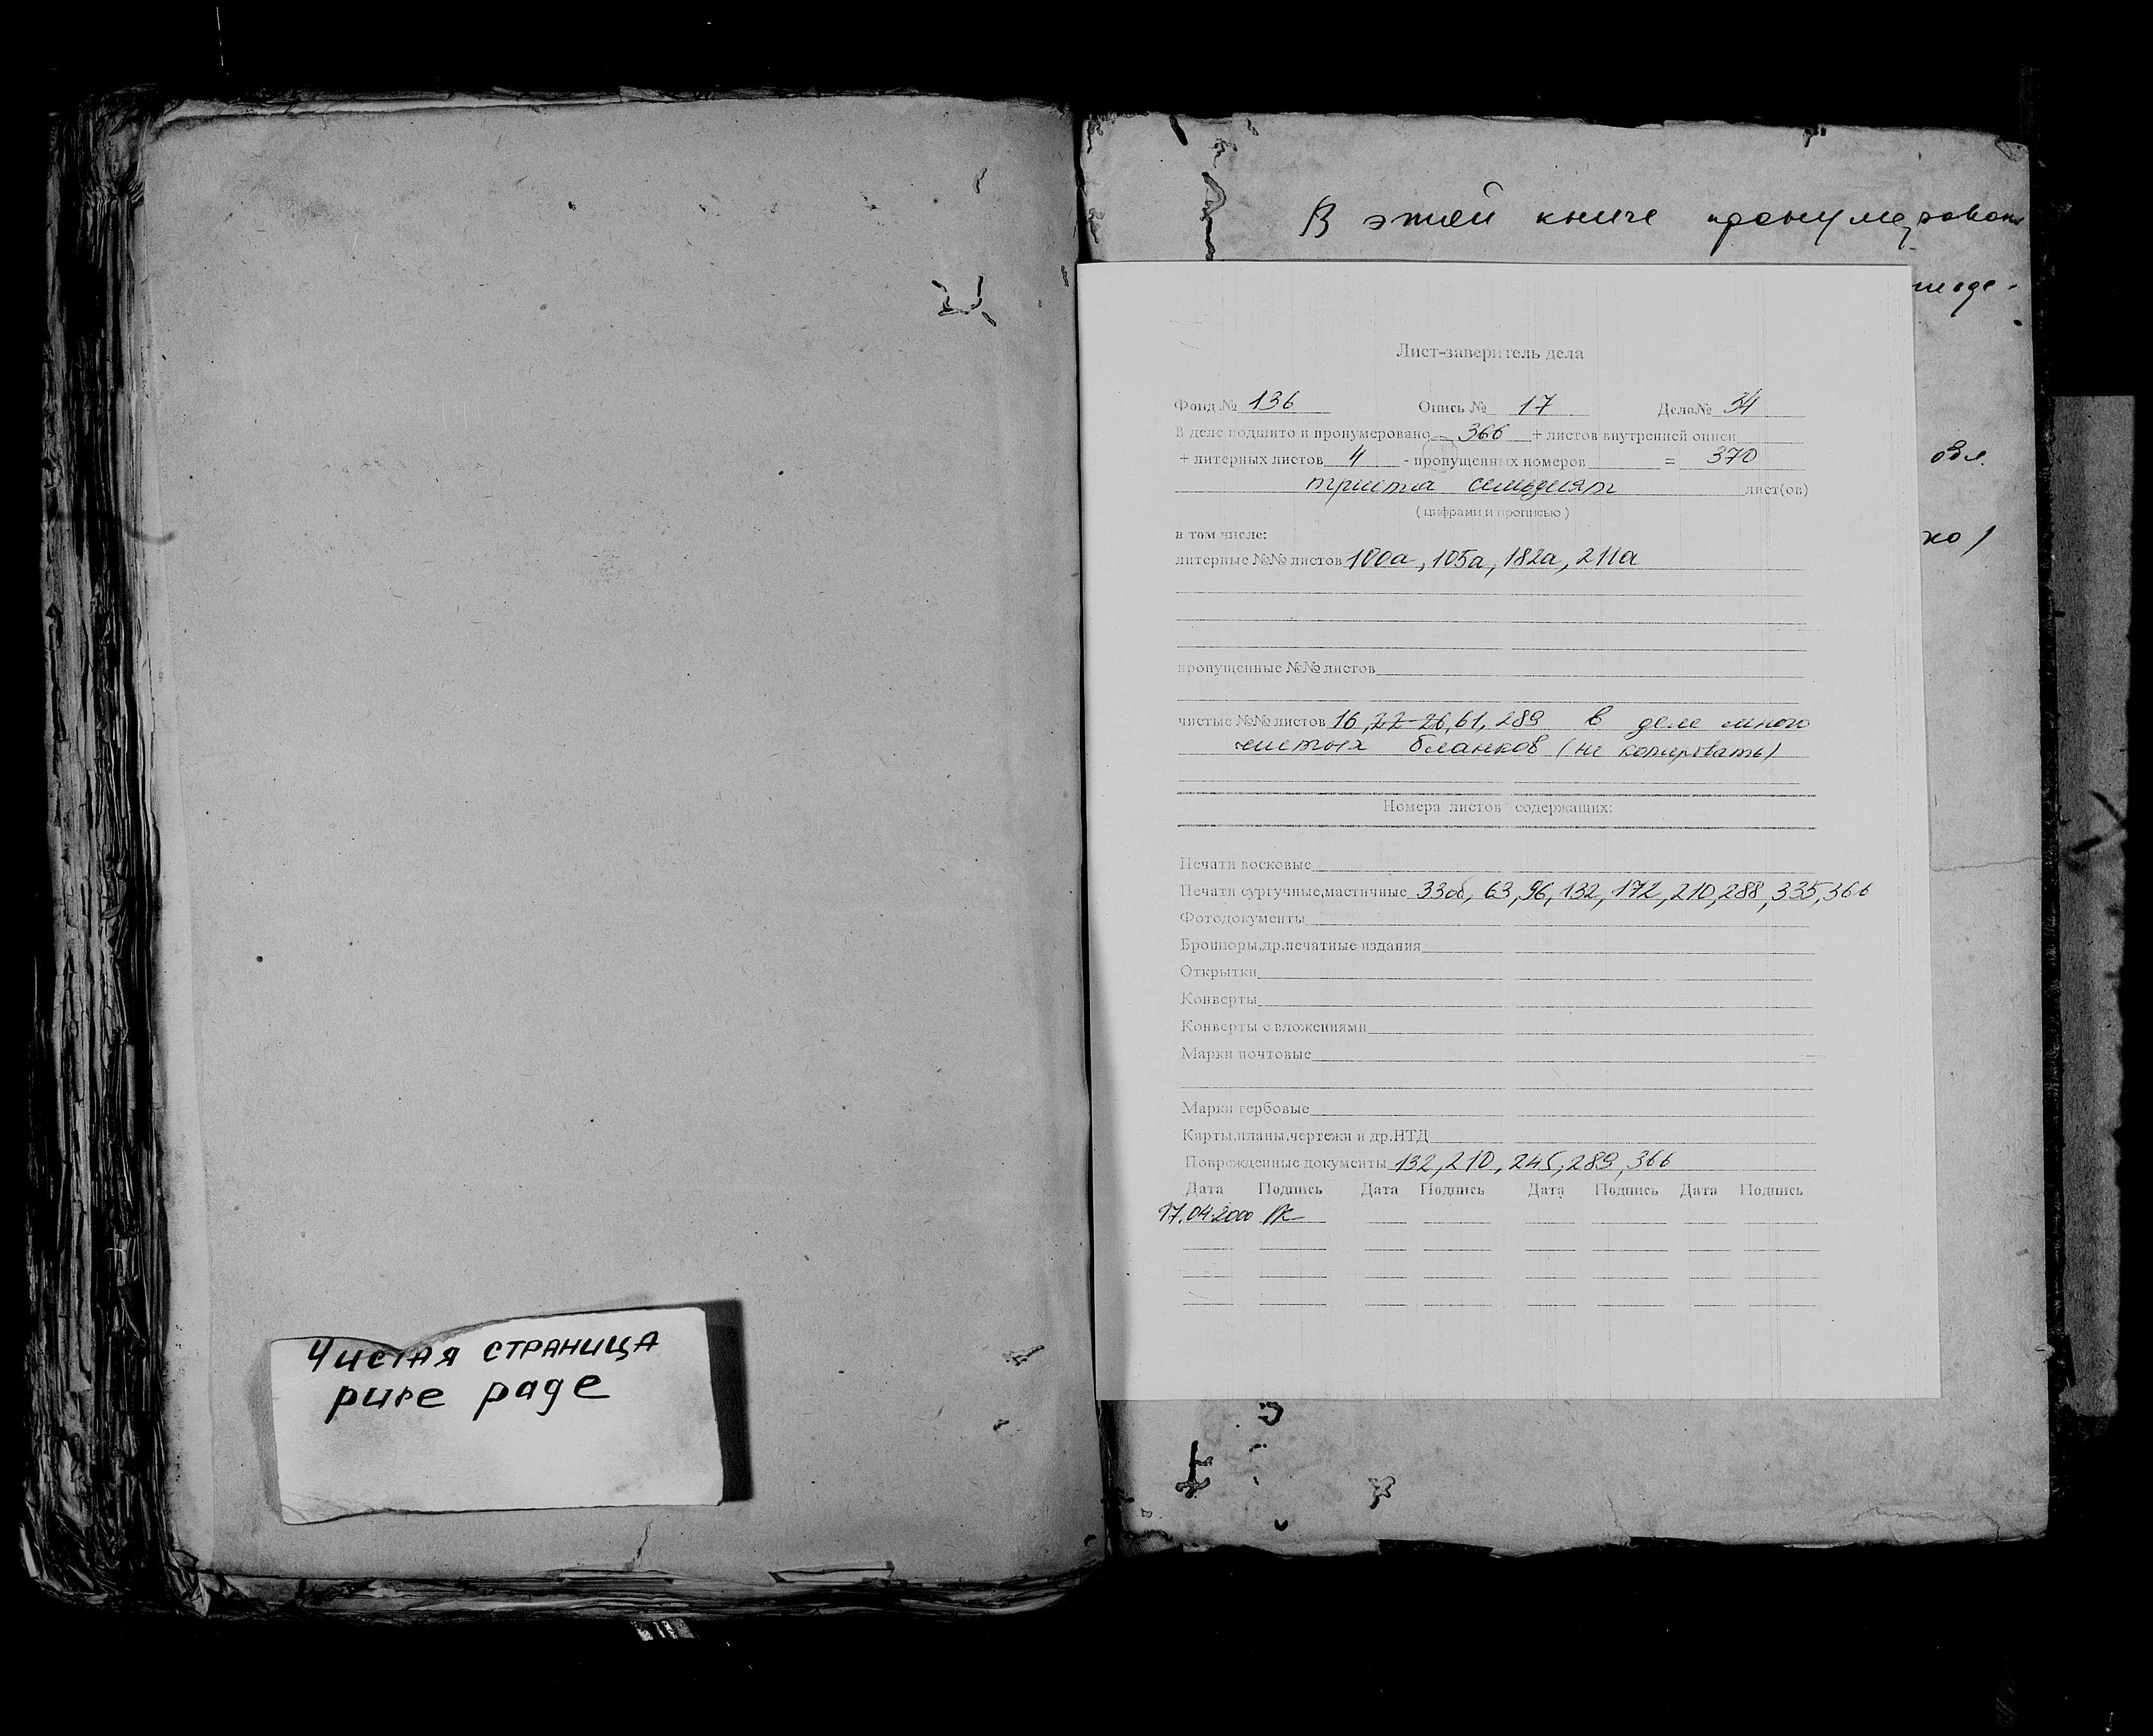 Чистая страница
pure page
В этой книге пронумеровано
Лист-заверитель дела
Фонд № 136 Опись № 17 Дело№ 34
В деле подшито и пронумеровано 366 + листов внутренней описи
+ литерных листов 4 - пропущенных номеров = 370
триста семьдесят лист(ов)
( цифрами и прописью )
в том числе:
литерные №№ листов 100а, 105а, 182а, 211а
пропущенные №№ листов
чистые №№ листов 16, 22-26, 61, 289 в деле много
чистых бланков (не копировать)
Номера листов содержащих:
Печати восковые
Печати сургучные,мастичные 33об, 63, 96, 132, 172, 210, 288, 335, 366
Фотодокументы
Брошюры,др.печатные издания
Открытки
Конверты
Конверты с вложениями
Марки почтовые
Марки гербовые
Карты,планы,чертежи и др.НТД
Поврежденные документы 132, 210, 245, 289, 366
Дата Подпись Дата Подпись Дата Подпись Дата Подпись
17.04.2000